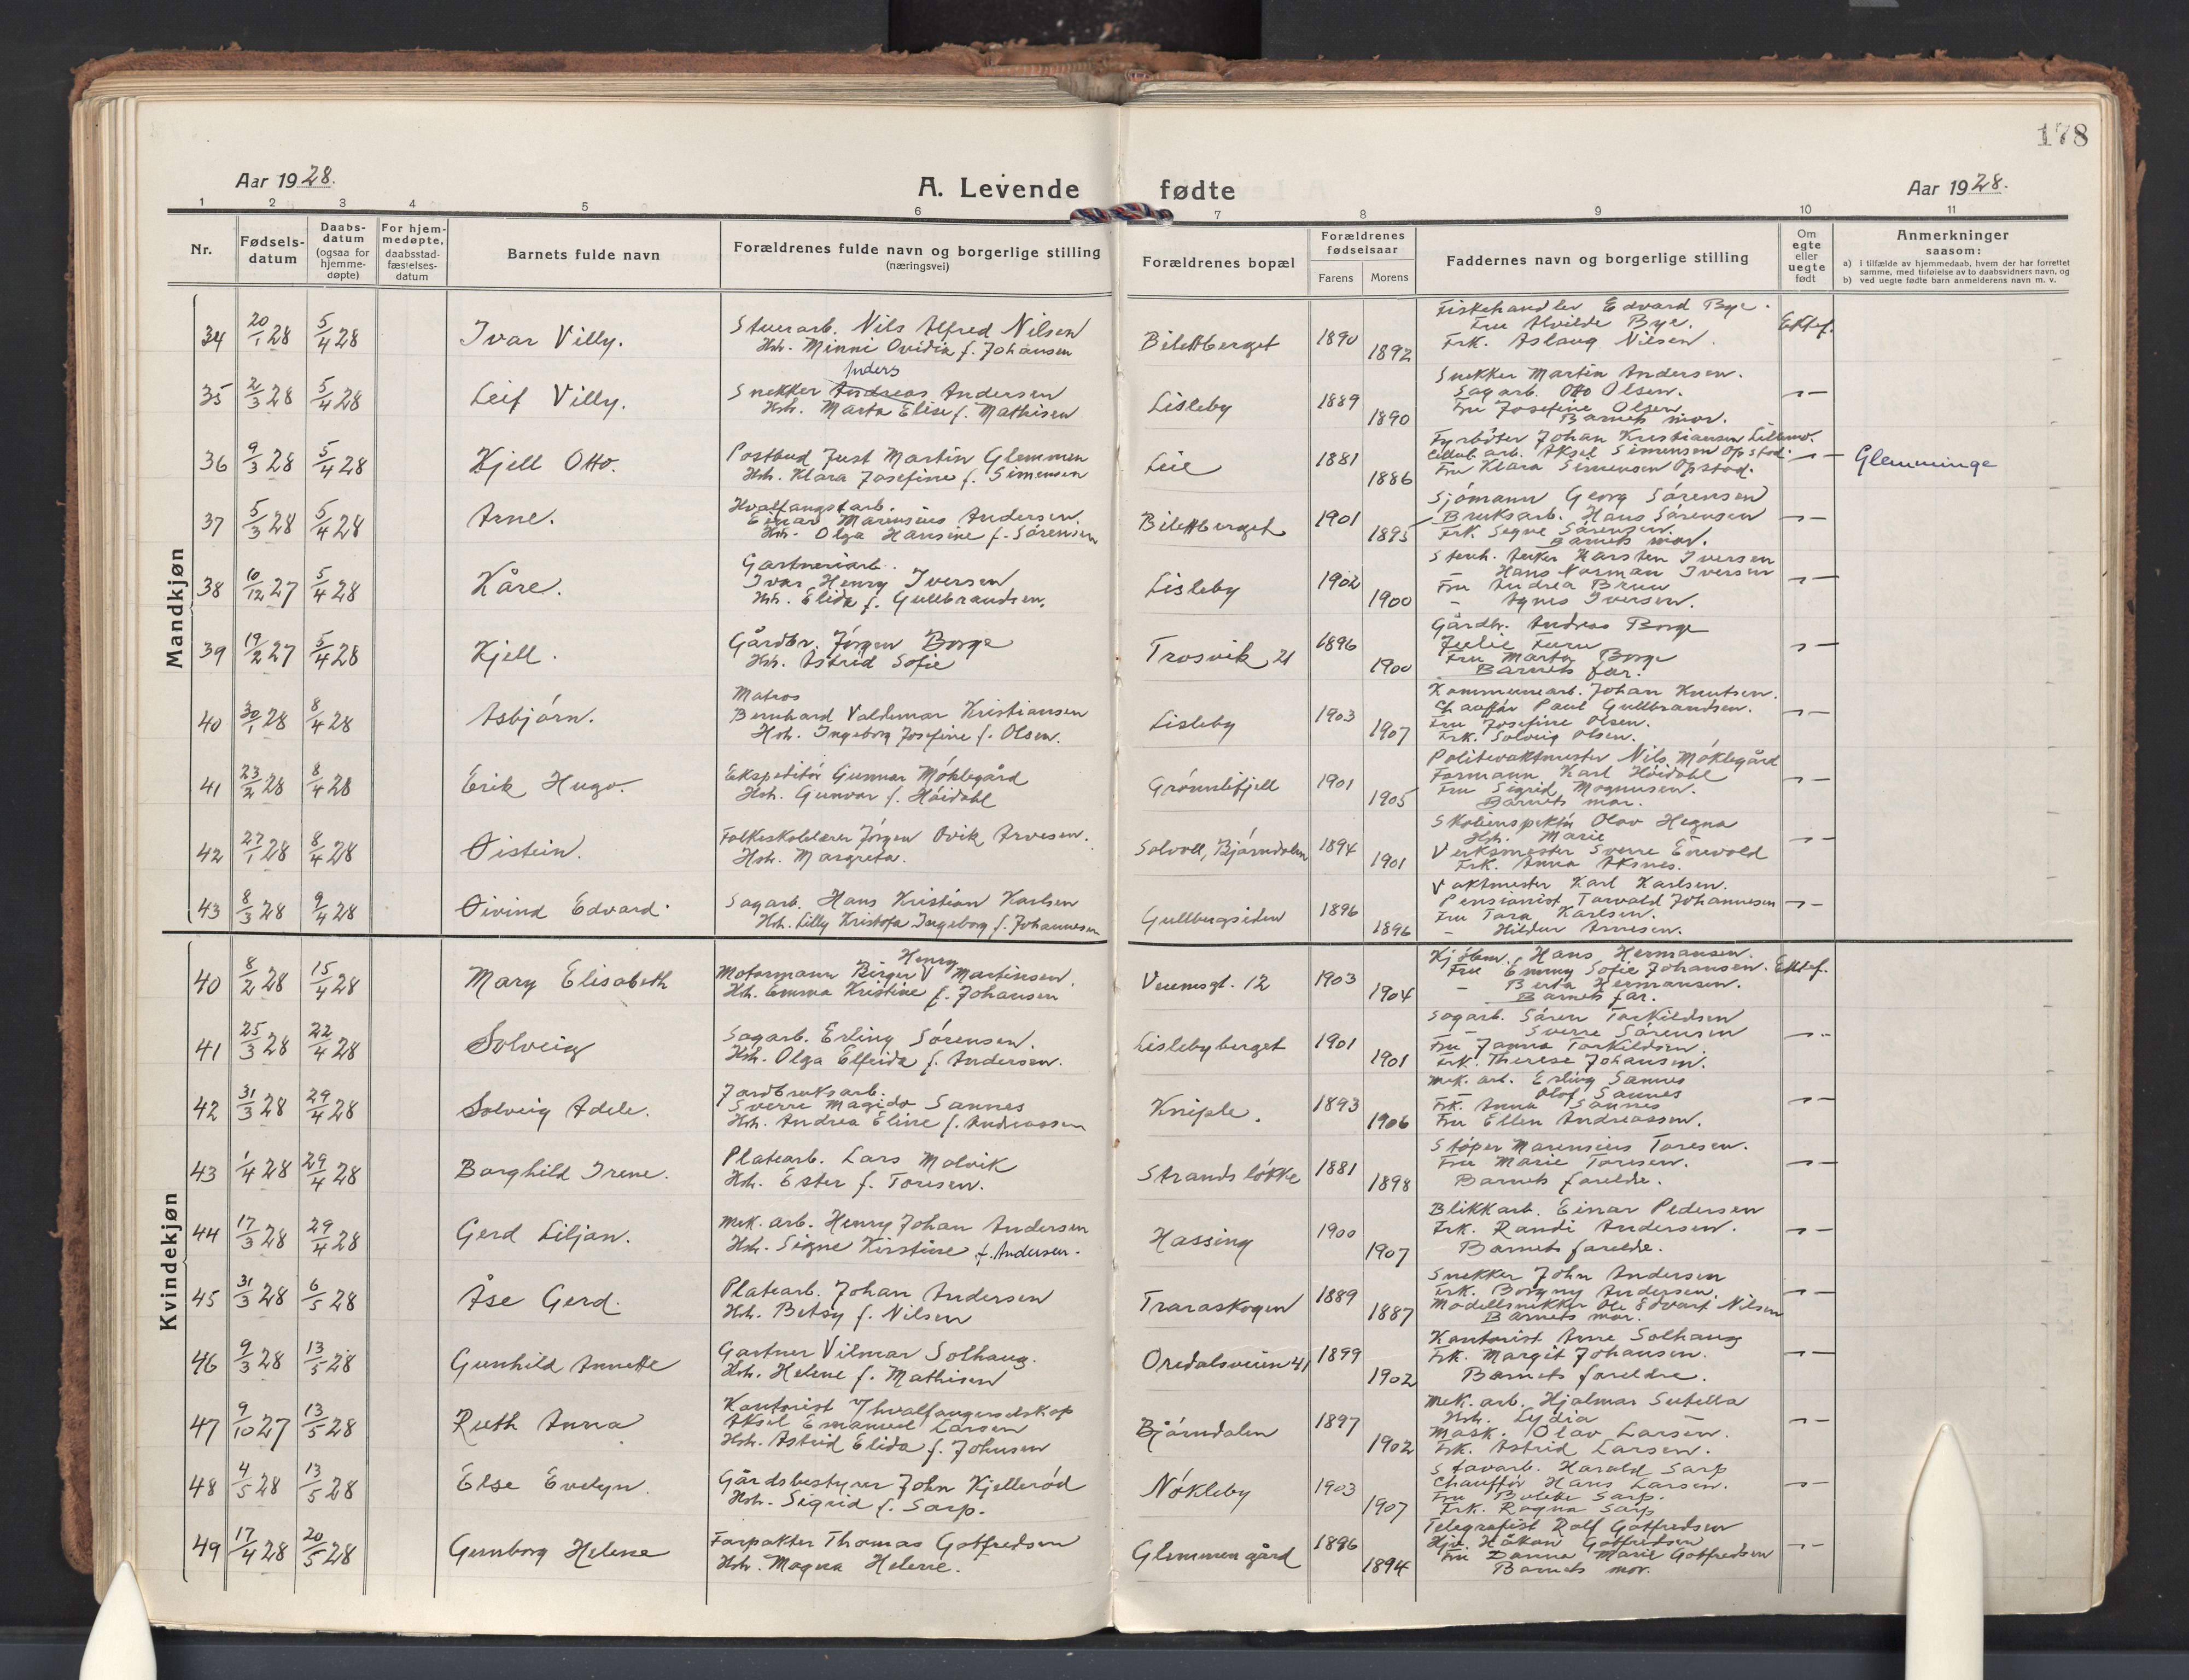 178
Aar 1928.
A. Levende fødte
Aar 1928.
1 2 3 4 5 6 7 8 9 10 11
Nr.
Fødsels-
datum
Daabs-
datum
(ogsaa for
hjemme-
døpte)
For hjem-
medøpte,
daabsstad-
fæstelses-
datum
Barnets fulde navn
Forældrenes fulde navn og borgerlige stilling
(næringsvei)
Forældrenes bopæl
Forældrenes
fødselsaar
Farens Morens
Faddernes navn og borgerlige stilling
Om
egte
eller
uegte
født
Anmerkninger
saasom:
a) i tilfælde av hjemmedaab, hvem der har forrettet
samme, med tilføielse av to daabsvidners navn, og
b) ved uegte fødte barn anmelderens navn m. v.
Mandkjøn
34 20/1 28 5/4 28 Ivar Villy.
Stuerarb. Nils Alfred Nilsen
Hst. Minni Ovidia f. Johansen
Bilettberget 1890 1892
Fiskehandler Edvard Bye.
Fru Alvilde Bye.
Frk. Aslaug Nilsen.
Ektef.
35 2/3 28 5/4 28 Leif Villy.
Anders
Snekker Andreas Andersen
Hst. Marta Elise f. Mathisen
Lisleby 1889 1890
Snekker Martin Andersen.
Sagarb. Otto Olsen.
Fru Josefine Olsen.
Barnets mor.
36 9/3 28 5/4 28 Kjell Otto.
Postbud Just Martin Glemmen
Hst. Klara Josefine f. Simensen
Leie 1881 1886
Fyrbøter Johan Kristiansen
Cellul. arb. Aksel Simensen Opstad.
Fru Klara Simensen Opstad.
Glemminge
37 5/3 28 5/4 28 Arne.
Hvalfangstarb.
Einar Marensius Andersen.
Hst. Olga Hansine f. Sørensen
Bilettberget 1901 1895
Sjømann Georg Sørensen
Bruksarb. Hans Sørensen
Frk. Signe Sørensen.
Barnets mor.
38 10/12 27 5/4 28 Kåre.
Gartneriarb.
Ivar Henry Iversen
Hst. Elida f. Gullbrandsen.
Lisleby 1902 1900
Stenh. Anker Karsten Iversen
– Hans Norman Iversen
Fru Andrea Bruu
– Agnes Iversen.
39 19/2 27 5/4 28 Kjell.
Gårdbr. Jørgen Borge
Hst. Astrid Sofie
Trosvik 21 1896 1900
Gårdbr. Andreas Borge
Julie Furu
Fru Marta Borge
Barnets far.
40 30/1 28 8/4 28 Asbjørn.
Matros
Bernhard Valdemar Kristiansen
Hst. Ingeborg Josefine f. Olsen.
Lisleby 1903 1907
Kommunearb. Johan Knutsen.
Chauffør Paul Gullbrandsen.
Fru Josefine Olsen.
Frk. Solveig Olsen.
41 23/2 28 8/4 28 Erik Hugo.
Ekspeditør Gunnar Møklegård
Hst. Gunvor f. Høidahl
Grønnlifjell 1901 1905
Politivaktmester Nils Møklegård
Formann Karl Høidahl
Fru Sigrid Magnusen.
Barnets mor.
42 27/1 28 8/4 28 Øistein.
Folkeskolelærer Jørgen Ovik Arvesen.
Hst. Margreta.
Solvoll, Bjørndalen 1894 1901
Skoleinspektør Olav Hegna
Hst. Marie
Verksmester Sverre Enevold
Frk. Anna Aksnes.
43 8/3 28 9/4 28 Øivind Edvard.
Sagarb. Hans Kristian Karlsen
Hst. Lilly Kristofa Ingeborg f. Johannesen
Gullbergsiden 1896 1896
Vaktmester Karl Karlsen.
Pensionist Torvald Johannesen
Fru Tora Karlsen.
– Hildur Arnesen.
Kvindekjøn
40 8/2 28 15/4 28 Mary Elisabeth
Henry
Motormann Birger V Martinsen.
Hst. Emma Kristine f. Johansen
Veumsgt. 12 1903 1904
Kjøbm. Hans Hermansen.
Fru Emmy Sofie Johansen.
– Berta Hermansen.
Barnets far.
Ektef.
41 25/3 28 22/4 28 Solveig
Sagarb. Erling Sørensen.
Hst. Olga Elfrida f. Andersen.
Lislebyberget 1901 1901
Sagarb. Søren Torkildsen
– Sverre Sørensen
Fru Janna Torkildsen.
Frk. Therese Johansen.
42 31/3 28 29/4 28 Solveig Adele.
Jordbruksarb.
Sverre Magido Sannes
Hst. Andrea Eline f. Andreassen
Kniple. 1893 1906
Mek. arb. Erling Sannes
– Olof Sannes
Frk. Anna Sannes
Fru Ellen Andreassen.
43 1/4 28 29/4 28 Borghild Irene.
Platearb. Lars Molvik
Hst. Ester f. Toresen.
Strandsløkke 1881 1898
Støper Marensius Toresen.
Fru Marie Toresen.
Barnets forelde.
44 17/3 28 29/4 28 Gerd Liljan.
Mek. arb. Henry Johan Andersen
Hst. Signe Kirstine f. Andersen.
Hassing 1900 1907
Blikkarb. Einar Pedersen
Frk. Randi Andersen.
Barnets forelde.
45 31/3 28 6/5 28 Åse Gerd.
Platearb. Johan Andersen
Hst. Betsy f. Nilsen
Traraskogen 1889 1887
Snekker John Andersen
Frk. Borgny Andersen.
Modellsnekker Ole Edvart Nilsen
Barnets mor.
46 9/3 28 13/5 28 Gunhild Annette
Gartner Vilmar Solhaug.
Hst. Helene f. Mathisen
Oredalsveien 41 1899 1902
Kontorist Arne Solhaug
Frk. Margit Johansen.
Barnets foreldre.
47 9/10 27 13/5 28 Ruth Anna
Kontorist i hvalfangerselskap
Aksel Emanuel Larsen
Hst. Astrid Elida f. Johnsen
Bjørndalen 1897 1902
Mek. arb. Hjalmar Sutella
Hst. Lydia
Mask. Olav Larsen.
Frk. Astrid Larsen.
48 4/5 28 13/5 28 Else Evelyn.
Gårdsbestyrer John Kjellerød
Hst. Sigrid f. Sarp.
Nøkleby 1903 1907
Stavarb. Harald Sarp
Chauffør Hans Larsen.
Fru Bolette Sarp.
Frk. Ragna Sarp
49 17/4 28 20/5 28 Gunborg Helene
Forpakter Thomas Gotfredsen
Hst. Magna Helene.
Glemmen gård 1896 1894
Telegrafist Rolf Gotfredsen
Hjv. Håkon Gotfredsen
Fru Danna Marie Gotfredsen
Barnets mor.